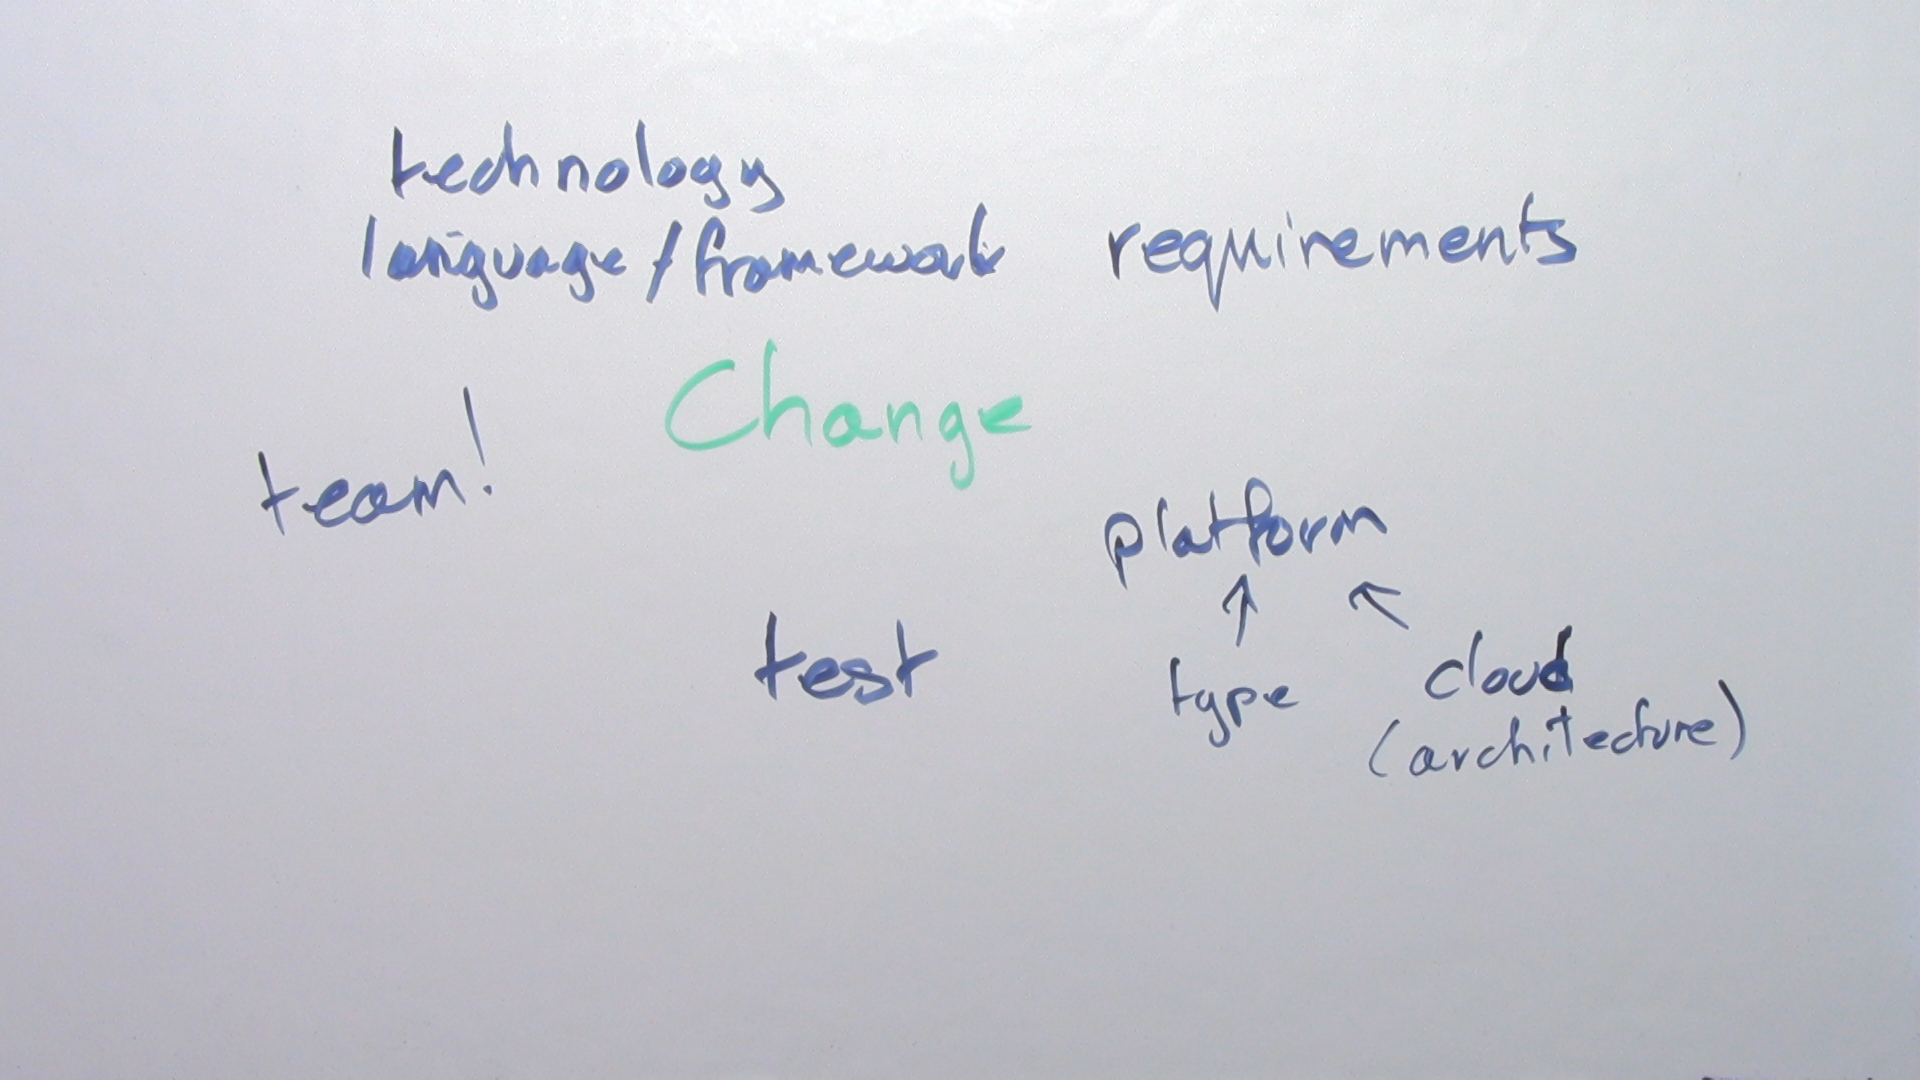 technology
language/framework
requirements
Change
team!
platform
test
type
cloud
(architecture)